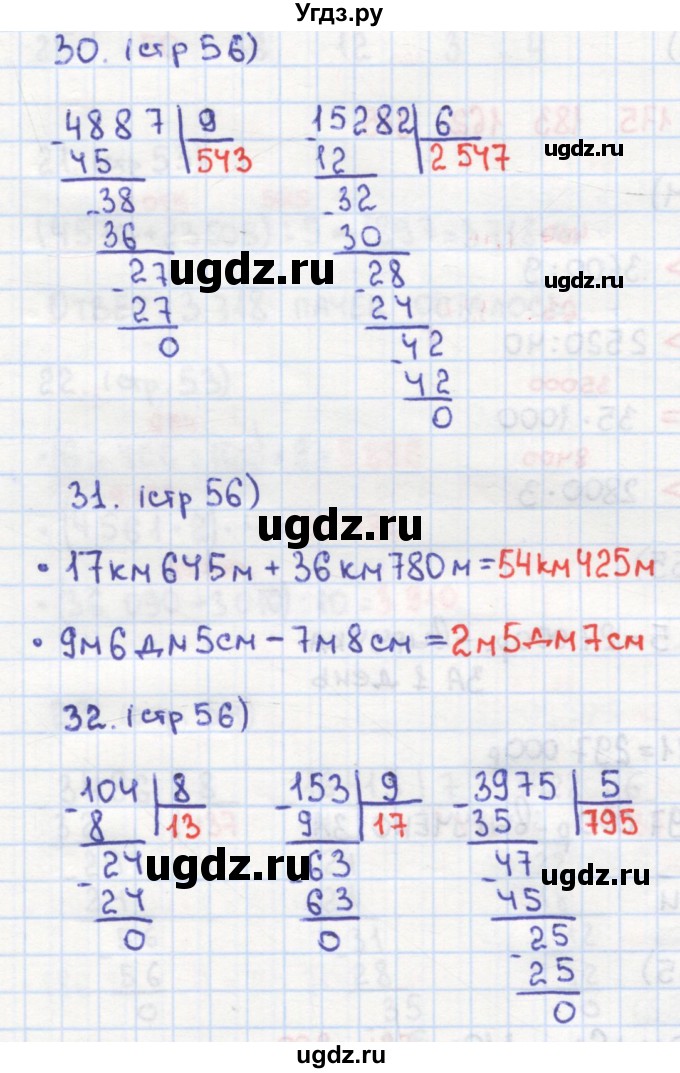 Угдз.ру
30. (стр 56)
4887 | 9
45 | 543
- 38
36
- 27
27
0
- 15282 | 6
12 | 2 547
- 32
30
- 28
24
- 42
42
0
ugdz.ru
ugdz.ru
ugdz.ru
31. (стр 56)
ugdz.ru
• 17км 645м + 36км 780м = 54км 425м
• 9м 6 дм 5см - 7м 8 см = 2м 5дм 7см
32. (стр 56)
- 104 | 8
8 | 13
- 24
24
0
- 153 | 9
9 | 17
- 63
63
0
- 3975 | 5
35 | 795
- 47
45
- 25
25
0
ugdz.ru
ugdz.ru
ugdz.ru